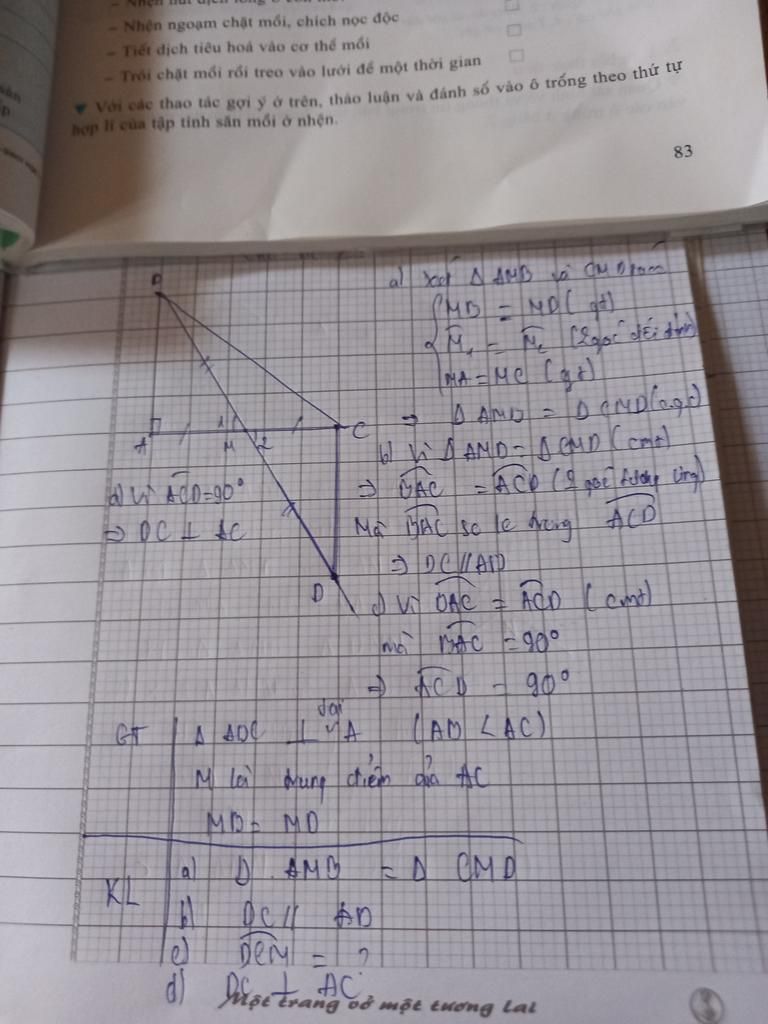 - Nhện ngoạm chặt mồi, chích nọc độc
- Tiết dịch tiêu hoá vào cơ thể mồi
- Trói chặt mồi rồi treo vào lưới để một thời gian
▼ Với các thao tác gợi ý ở trên, thảo luận và đánh số vào ô trống theo thứ tự
hợp lí của tập tính săn mồi ở nhện.
83
a) Xét Δ AMB và CMD
MB = MD (gt)
M₁ = M₂ (2 góc đối đỉnh)
MA = MC (gt)
⇒ Δ AMB = Δ CMD (c.g.c)
b) Vì Δ AMB = Δ CMD (cmt)
⇒ BAC = ACD (2 góc tương ứng)
Mà BAC so le trong ACD
⇒ DC // AB
c) Vì BAC = ACD (cmt)
mà BAC = 90°
⇒ ACD = 90°
d) Vì ACD = 90°
⇒ DC ⊥ AC
B
A
M
1
2
C
D
GT Δ ABC ⊥ tại A (AB < AC)
M là trung điểm của AC
MB = MD
KL a) Δ AMB = Δ CMD
b) DC // AB
c) DCM = ?
d) DC ⊥ AC
Một trang vở một tương lai